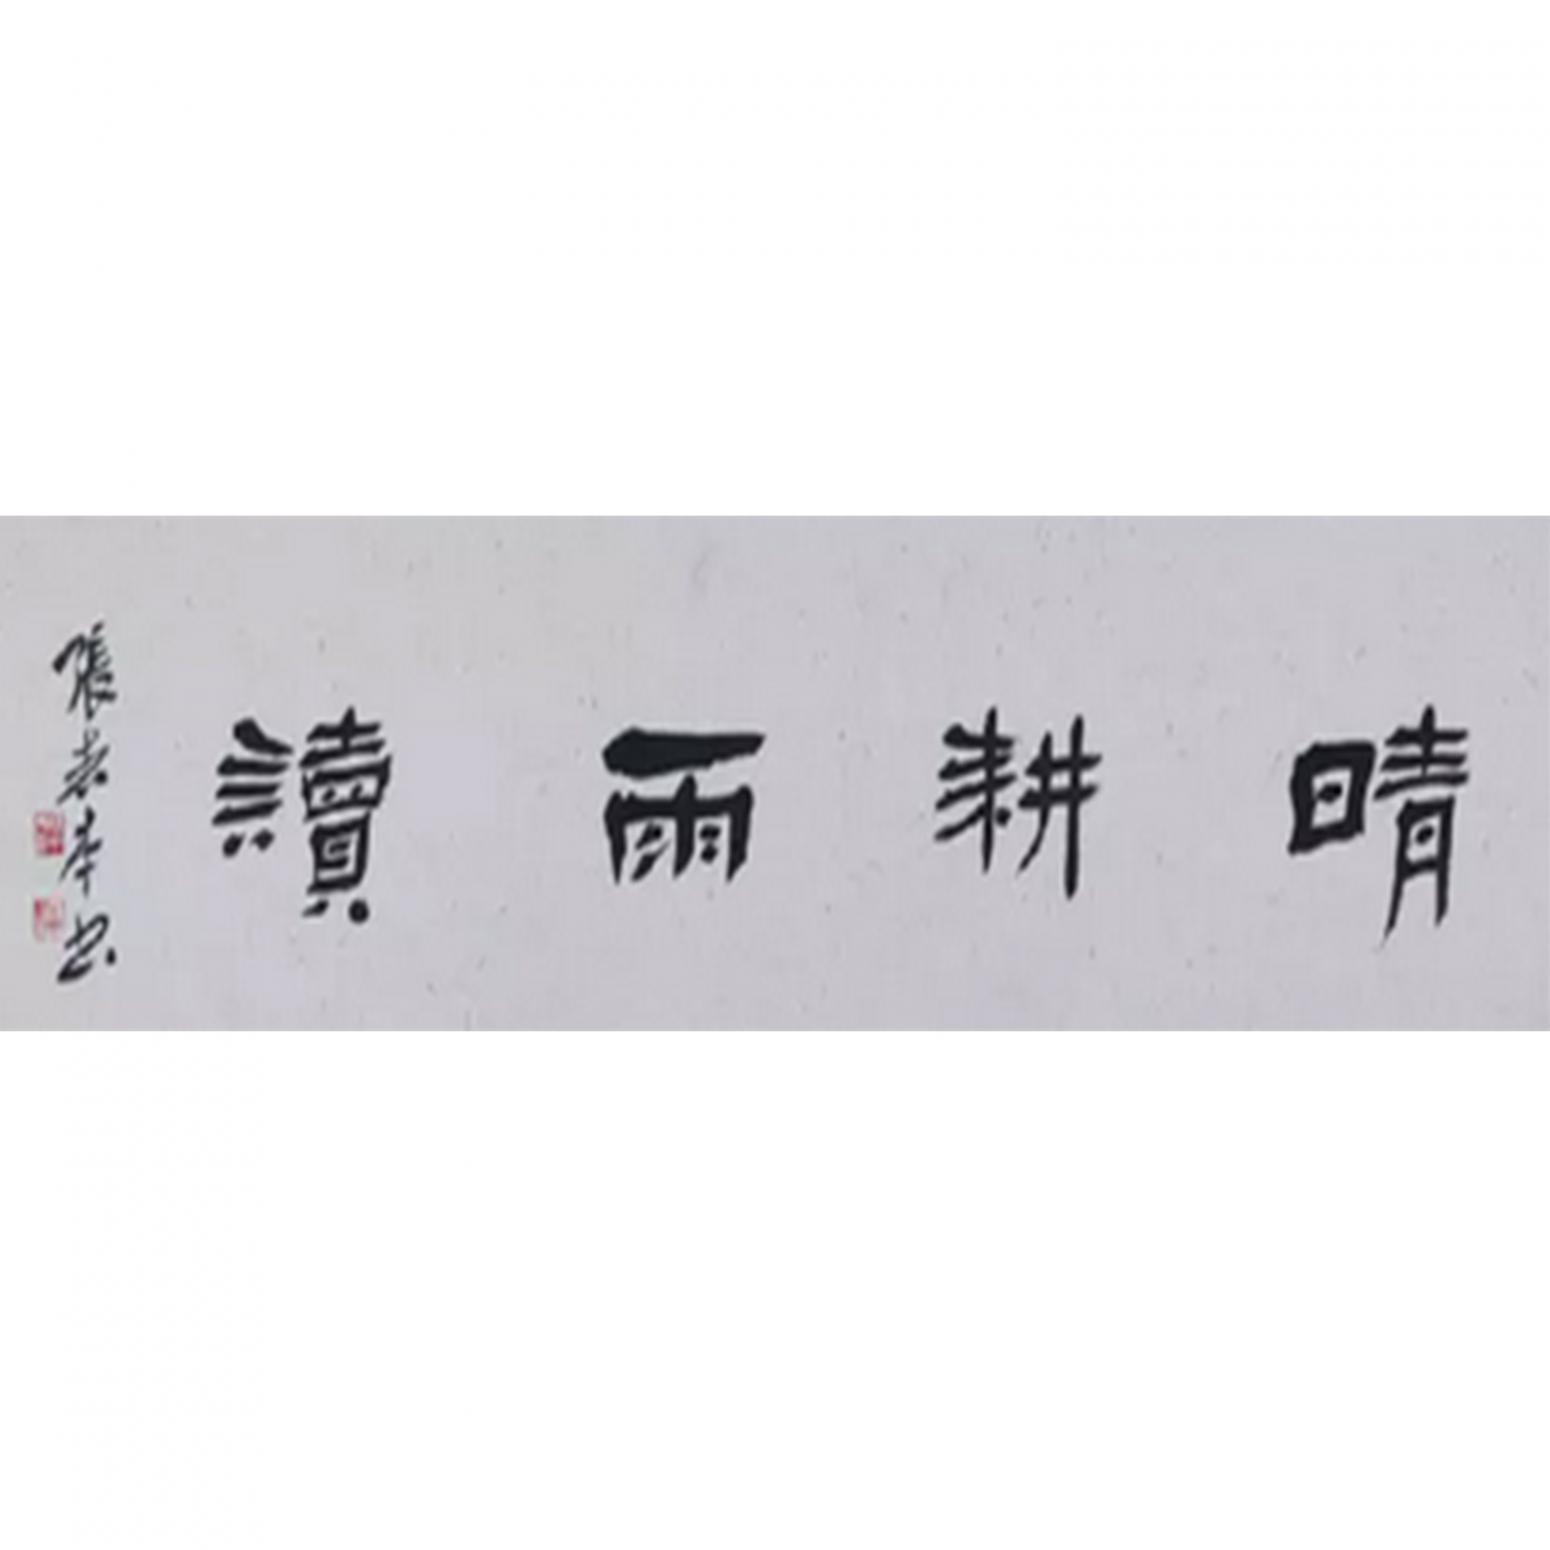 晴耕雨讀
張
書